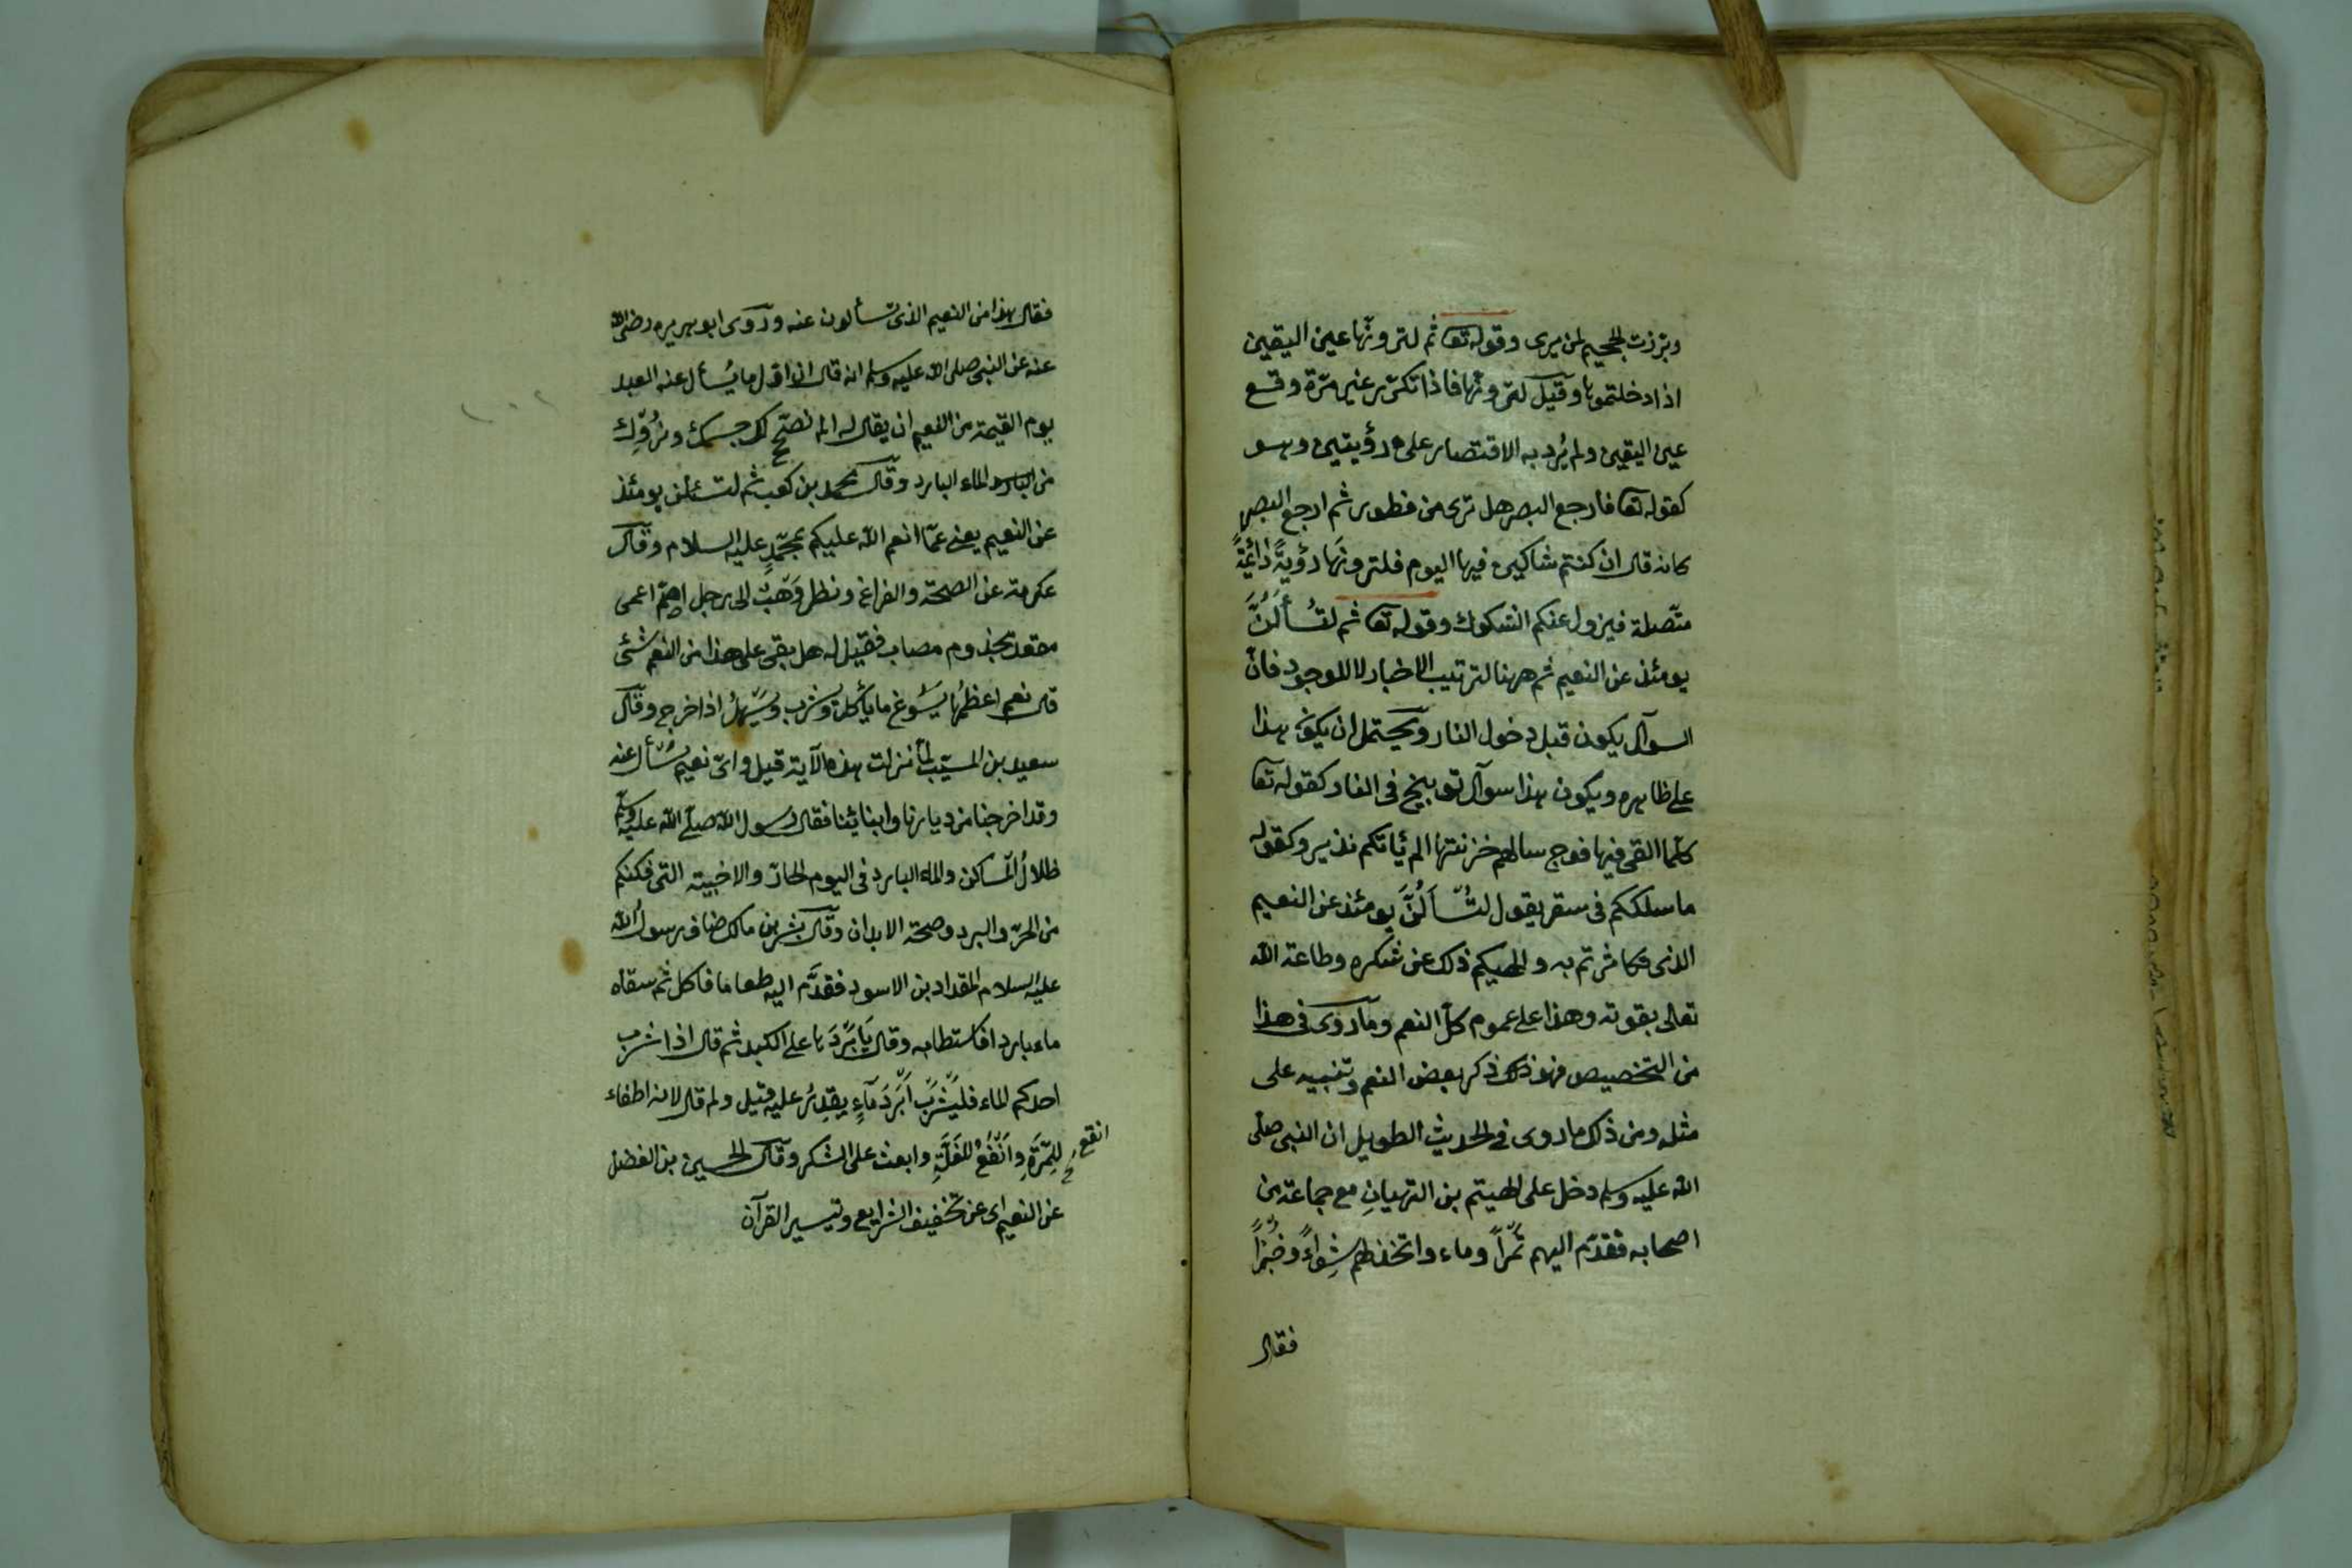 وبرزت الجحيم لمن يرى وقوله تعا ثم لترونها عين اليقين
اذا دخلتموها وقيل لترونها فاذا تكرر غير مرة وقع
عين اليقين ولم يُرد به الاقتصار على رؤيتين وهو
كقوله تعا فارجع البصر هل ترى من فطور ثم ارجع البصر
كانه قال ان كنتم شاكين فيها اليوم فلترونها رؤيةً دائمةً
متّصلة فيزول عنكم الشكوك وقوله تعا ثم لتُسألُنَّ
يومئذ عن النعيم ثم ههنا لترتيب الاخبار لا للوجود فانّ
السوآل يكون قبل دخول النار ويحتمل ان يكون هذا
على ظاهره ويكون هذا سوآل توبيخ فى النار كقوله تعا
كلّما القى فيها فوج سالهم خزنتها الم يأتكم نذير وكقوله
ما سلككم فى سقر يقول لتُسألُنَّ يومئذ عن النعيم
الذى تكاثرتم به والهيكم ذلك عن شكره وطاعة الله
تعالى بقوته وهذا على عموم كلّ النعم وما روى فى هذا
من التخصيص فهو ذلك ذكر بعض النعم وتنبيه على
مثله ومن ذلك ما روى فى الحديث الطويل ان النبى صلى
الله عليه وسلم دخل على الهيتم بن التيهان مع جماعة من
اصحابه فقدّم اليهم تمراً وماء واتخذ لهم شِواءً وخُبزاً
فقال
فقال هذا من النعيم الذى تسألون عنه وروى ابو هريره رضى الله
عنه عن النبى صلى الله عليه وسلم انه قال ان اول ما يُسأل عنه العبد
يوم القيمة من النعيم ان يقال له الم نصحّ لك جسمك ونروّك
من البارد الماء البارد وقال محمد بن كعب ثم لتسئلن يومئذ
عن النعيم يعنى عمّا انعم الله عليكم بمحمّدٍ عليه السلام وقال
عكرمة عن الصحة والفراغ ونظر وَهْبٌ الى رجل اصمّ اعمى
مقعد مجذوم مصاب فقيل له هل بقى على هذا من النعم شئى
قال نعم اعظمُها يُسوّغ ما يأكل ويشرب ويُسهّلُ اذا خرج وقال
سعيد بن المسيّب لمّا نزلت هذه الآية قيل واىّ نعيم نُسأل عنه
وقد اخرجنا من ديارنا وابنائنا فقال رسول الله صلّى الله عليه وسلم
ظلالُ المساكن والماء البارد فى اليوم الحارّ والاخبية التى تكنكم
من الحرّ والبرد وصحة الابدان وقال بشر بن مالك ضاف رسولُ الله
عليه السلام المقداد بن الاسود فقدَّم اليه طعاما فاكل ثم سقاه
ماء باردا فاستطابه وقال يَا بَرْدَها على الكبد ثم قال اذا شرب
احدكم الماء فليَشْرَبْ اَبْرَدَ مآءٍ يقدِرُ عليه قيل ولم قال لانه اطفاء
للمِرّةِ واَنْفَعُ للغَلّةِ وابعث على الشكر وقال الحسين بن الفضل
انقع
عن النعيم اى عن تخفيف الشرايع وتيسير القرآن